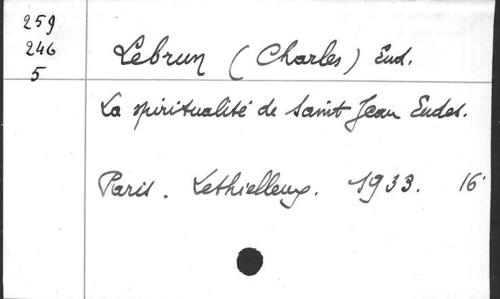 259
246
5
Lebrun (Charles) Eud.
La spiritualité de Saint Jean Eudes.
Paris. Lethielleux. 1933. 16°